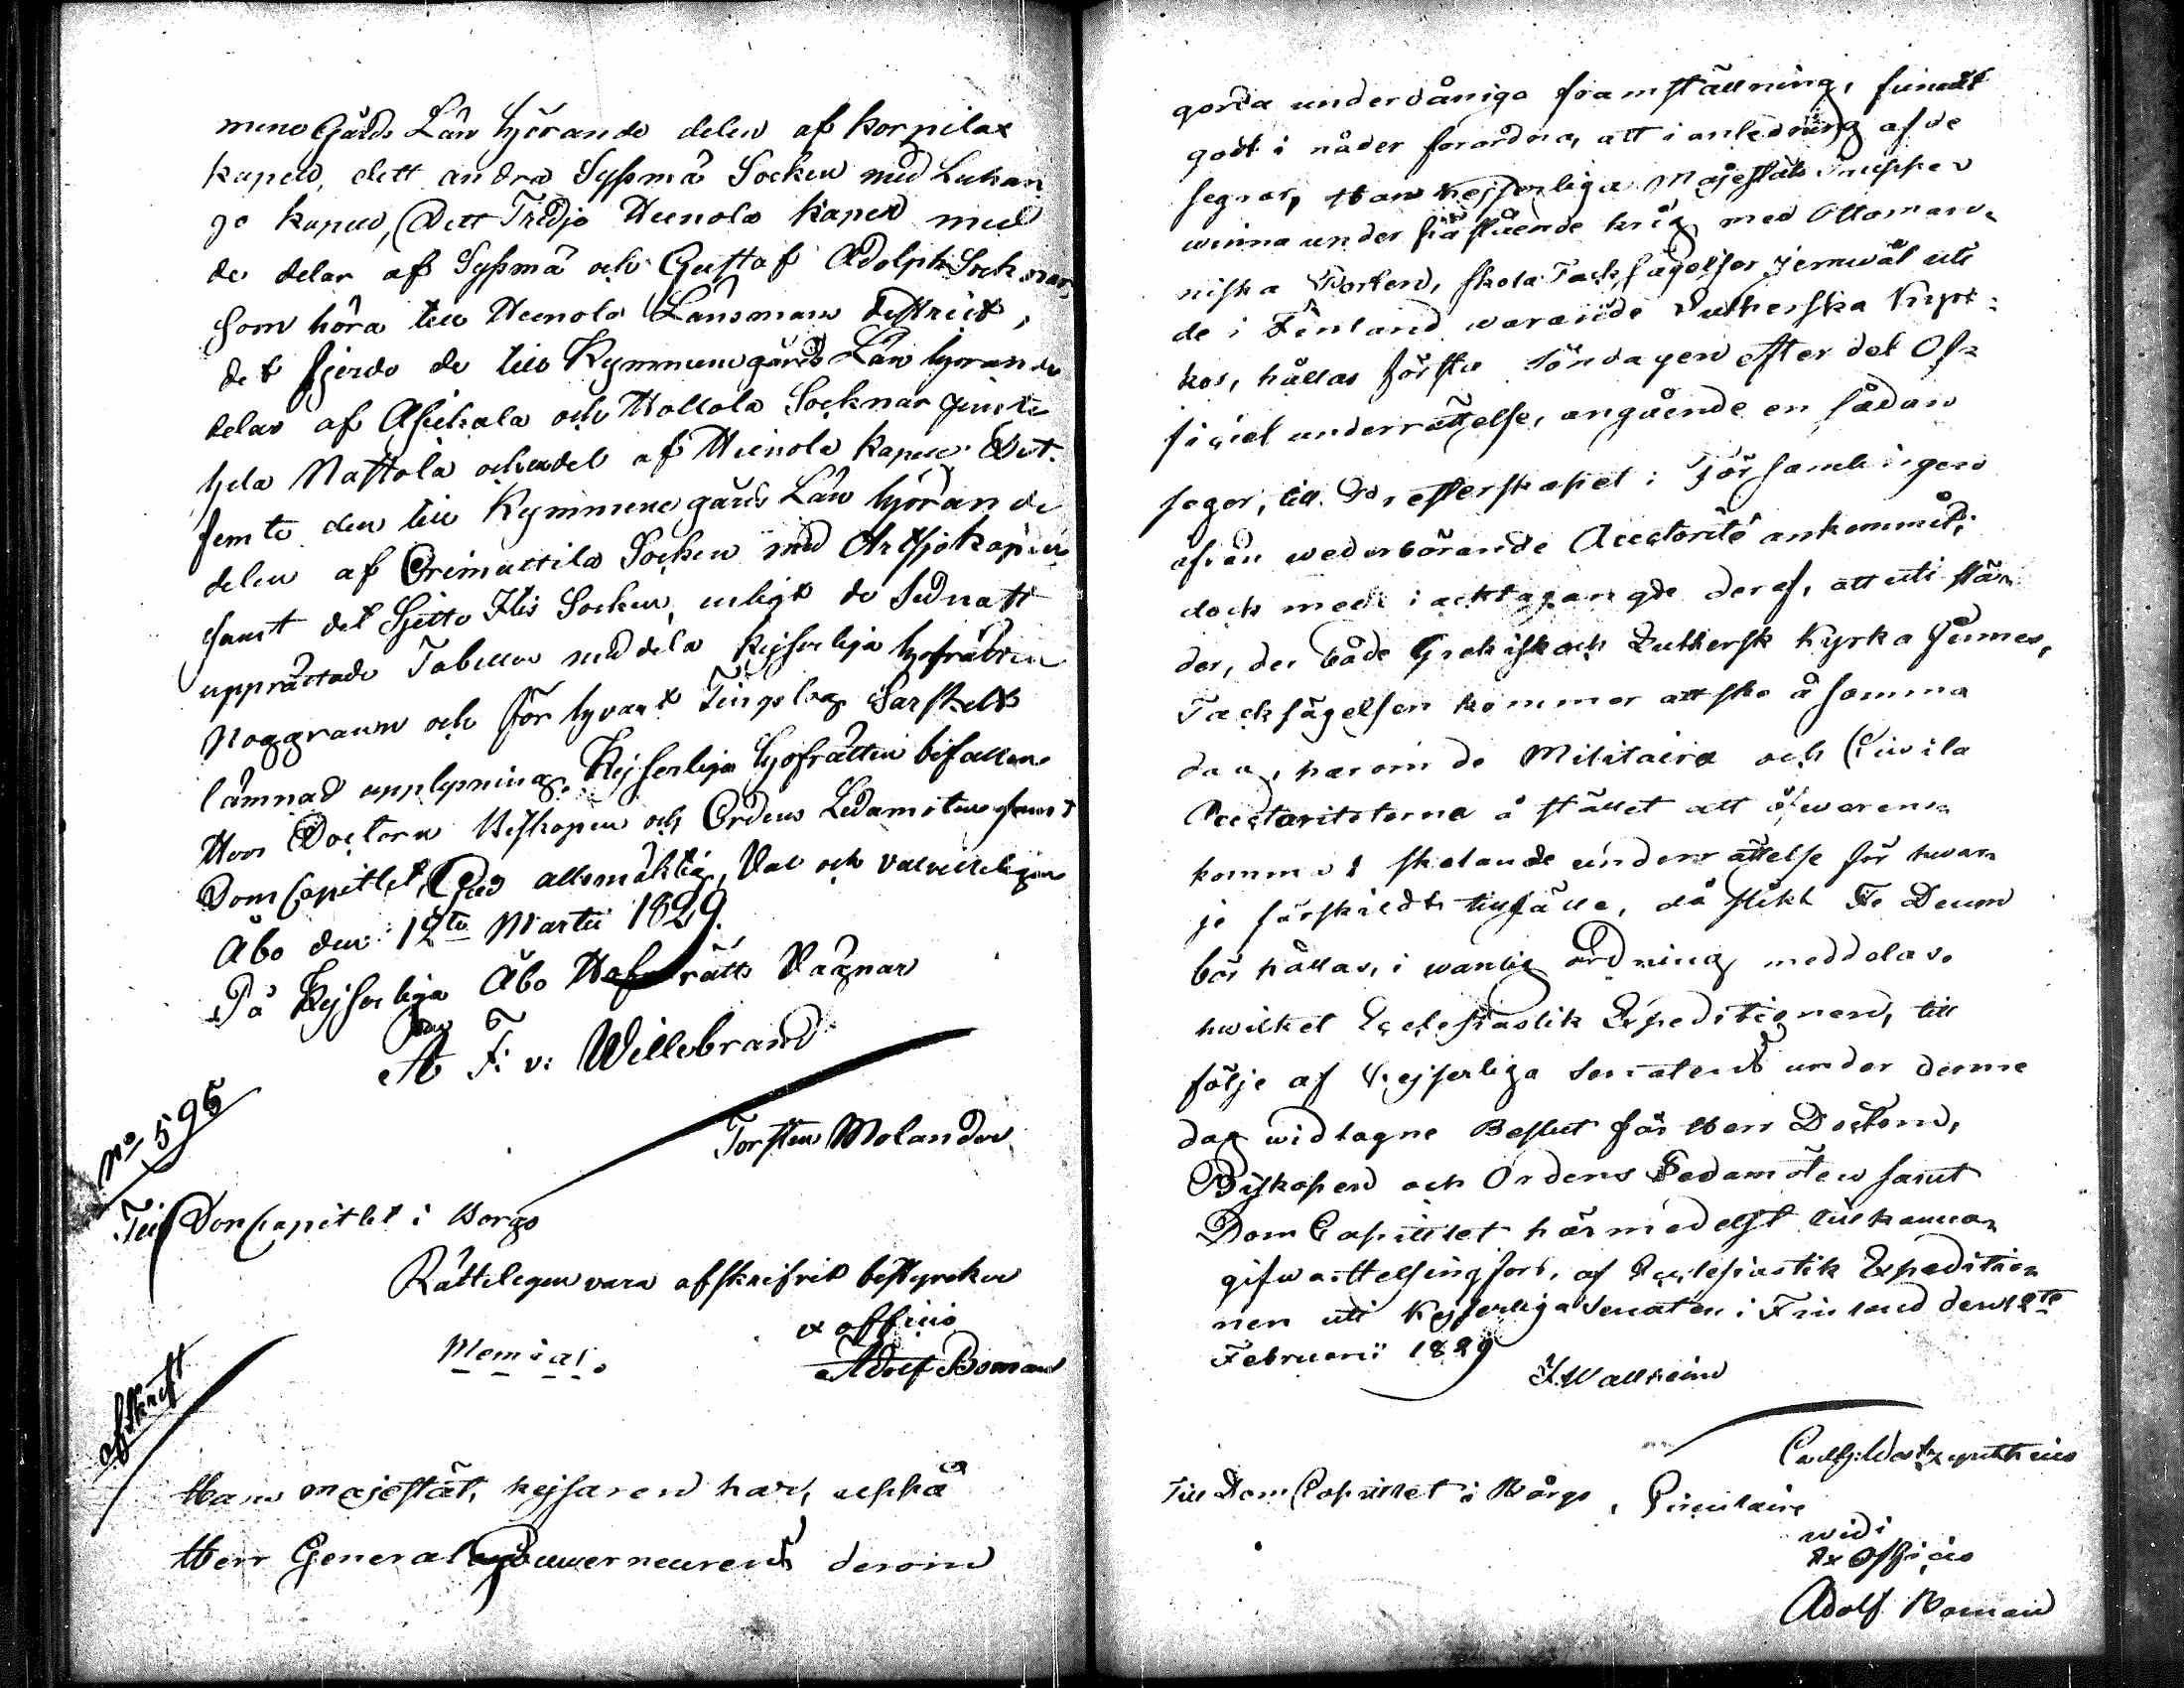 mene Gårds Län hörande delen af Korpilax
kapell, dett andra Syssmä Socken med Luhan
go kapell, Dett Tredje Heinola kapell med
de delar af Syssmä och Gustaf Adolphs Socknar,
som höra till Heinola Länsmans distrikt,
det fjerde de till Kymmenegårds Län hörande
delar af Asickala och Hollola Socknar jemte
hela Nastola och en del af Heinola kapell Det
femte den till Kymmene gårds Län hörande
delen af Orimattila Socken med Artsjö kapell
samt det Sjette Itis Socken, enligt de Sednast
upprättade Tabeller meddela Kejserliga hofrätten
noggrann och för hvart Tingslag Särskilt
lämnad upplysning. Kejserliga hofrätten befaller
Herr Doctorn Biskopen och Ordens Ledamoten samt
Dom Capitlet, Gud allsmäktig, Val och valvilligen
Åbo den 12te Martii 1829.
På Kejserliga Åbo Hofrätts Vägnar
A F. v. Willebrand
Torsten Molander
No 596
Till Dom Capitlet i Borgo
Rätteligen vara afskrifvit bestyrcker
ex officio
Adolf Boman
Memorial.
afskrift
Hans majestät, kejsaren har, uppå
Herr General Gouverneurens derom
gorda underdåniga framställning, funnit
godt i nåder forordna, att i anledning af de
segrar, Hans Kejserliga Majestäts Trupper
winna under påstående krig med Ottoman-
niska Porten, skola Tacksägelser jemväl uti
de i Finland warande Lutherska Kyr-
kor, hållas första Söndagen efter det Of-
ficiel underrättelse, angående en sådan
seger, till Presterskapet i Församlingen
ifrån wederbörande Auctorité ankommit;
dock med iakttagan gde deraf, att uti stä-
der, der både Grekisk och Luthersk Kyrka finnes,
Tacksägelsen kommer att ske å samma
dag, har om de Militaira och Civila
Auctoriteterna å stället att öfwerens-
komma skolande underrättelse för hwar-
je särskildt tillfälle, då slikt Te Deum
bör hållas, i wanlig ordning meddelas.
hwilket Ecclesiastik Expeditionen, till
följe af Kejserliga Senatens under denne
dag widtagne Beslut får Herr Doctorn,
Biskopen och Ordens Ledamoten samt
Dom Capitlet härmedelst tillkänna-
gifwa. Helsingfors, af Ecclesiastik Expeditio-
nen uti Kejserliga Senaten i Finland den 12te
Februarii 1829
J. Walleen
Till Dom Capitlet i Borgo, Circulaire
widi
Ex officio
Adolf Boman